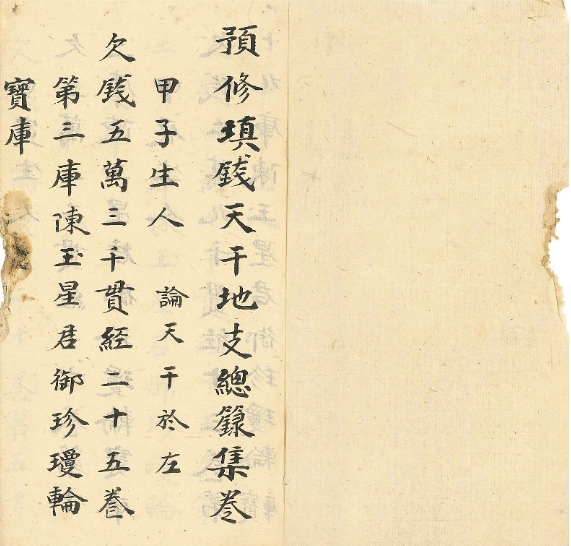 預修填錢天干地支總籙集卷
甲子生人 論天干於左
欠錢五萬三千貫經二十五卷
第三庫陳玉星君御珍瓊輪
寶庫